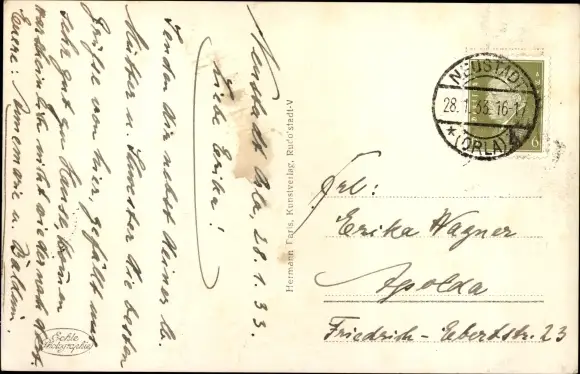 Neustadt Orla, 28.1.33.
Liebe Erika!
Senden dir nebst deiner lb.
Mutter u. Schwester die besten
Grüße von hier, gefällt uns
sehr gut zu Hause, kommen
wahrscheinlich nicht wieder nach dort.
Eure: Annemarie u.
Echte
Photographie
Hermann Paris, Kunstverlag, Rudolstadt-V
NEUSTADT
28.1.33.16-17
* (ORLA)
6
Frl:
Erika Wagner
Apolda
Friedrich-Ebertstr. 23